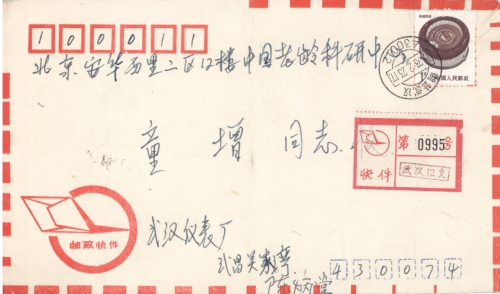 100011
北京安华西里二区12楼中国老龄科研中
童增 同志
第0995号
快件
武汉12支
邮政快件
武汉仪表厂
武昌吴家湾
430074
中国人民邮政